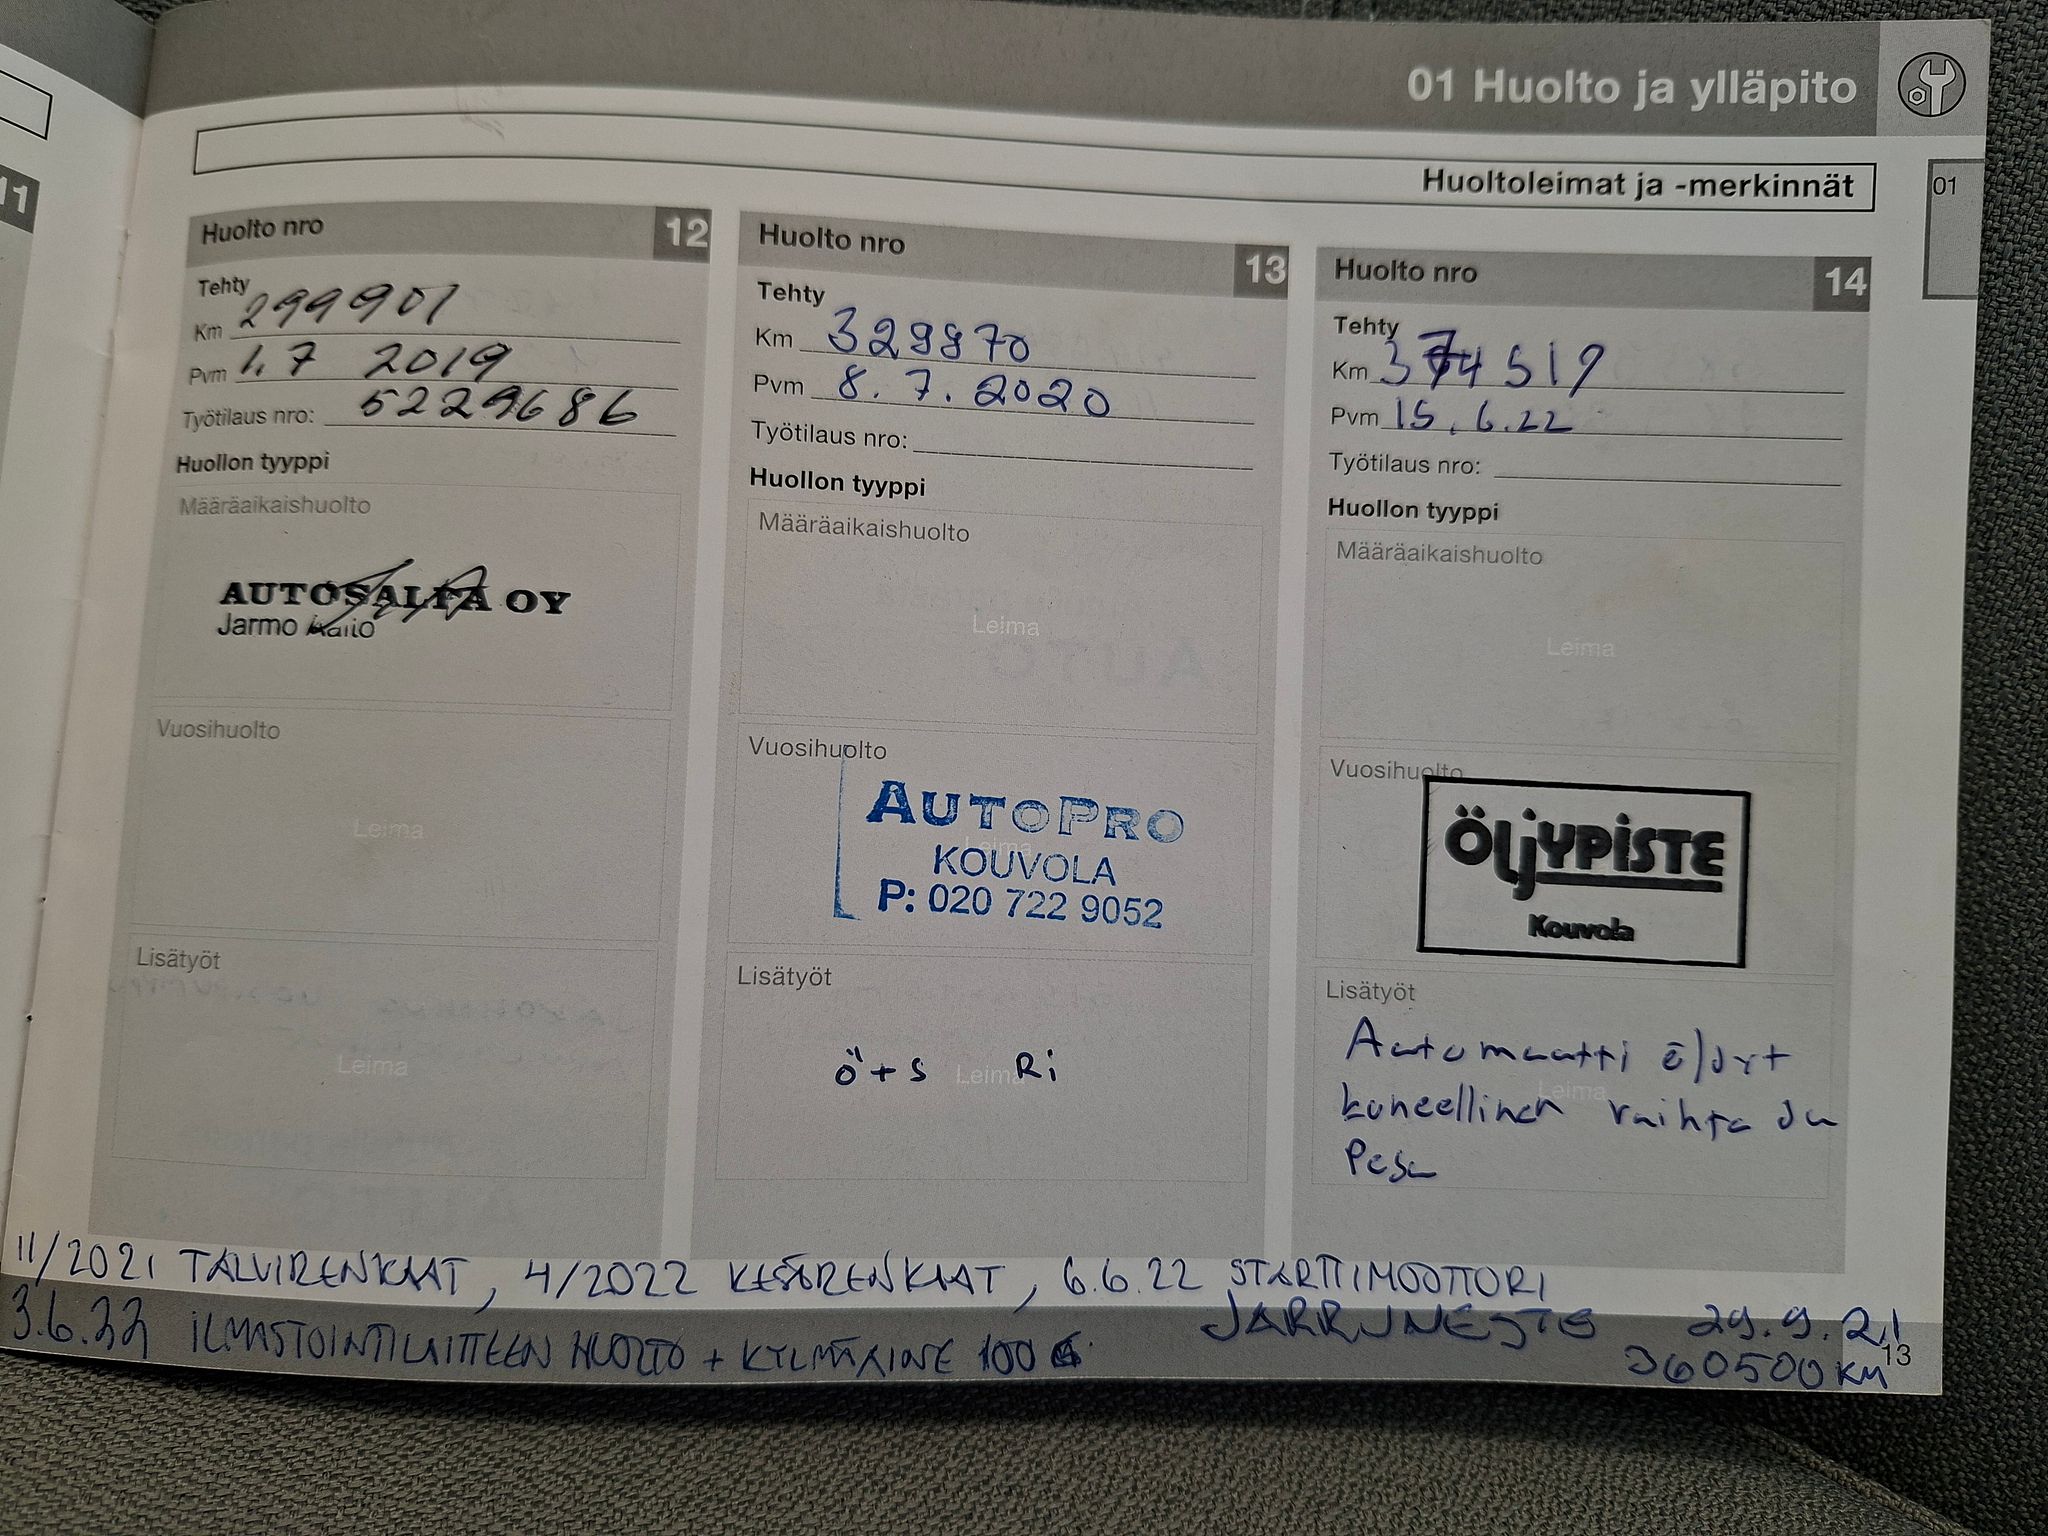 01 Huolto ja ylläpito
Huoltoleimat ja -merkinnät
01
11
Huolto nro 12
Tehty
Km 299901
Pvm 1.7 2019
Työtilaus nro: 5229686
Huollon tyyppi
Määräaikaishuolto
AUTOSALFA OY
Jarmo
Vuosihuolto
Leima
Lisätyöt
Leima
Huolto nro 13
Tehty
Km 329970
Pvm 8.7.2020
Työtilaus nro:
Huollon tyyppi
Määräaikaishuolto
Leima
Vuosihuolto
Leima
AUTOPRO
KOUVOLA
P: 020 722 9052
Lisätyöt
Leima
ö+s Ri
Huolto nro 14
Tehty
Km 374519
Pvm 15.6.22
Työtilaus nro:
Huollon tyyppi
Määräaikaishuolto
Leima
Vuosihuolto
ÖLJYPISTE
Kouvola
Lisätyöt
Leima
Automaatti öljyt
koneellinen vaihto ja
Pesu
11/2021 TALVIRENKAAT, 4/2022 KESÄRENKAAT, 6.6.22 STARTTIMOOTTORI
3.6.22 ILMASTOINTILAITTEEN HUOLTO + KYLMÄAINE 100 G.
JARRUNESTE 29.9.21
360500 KM
13